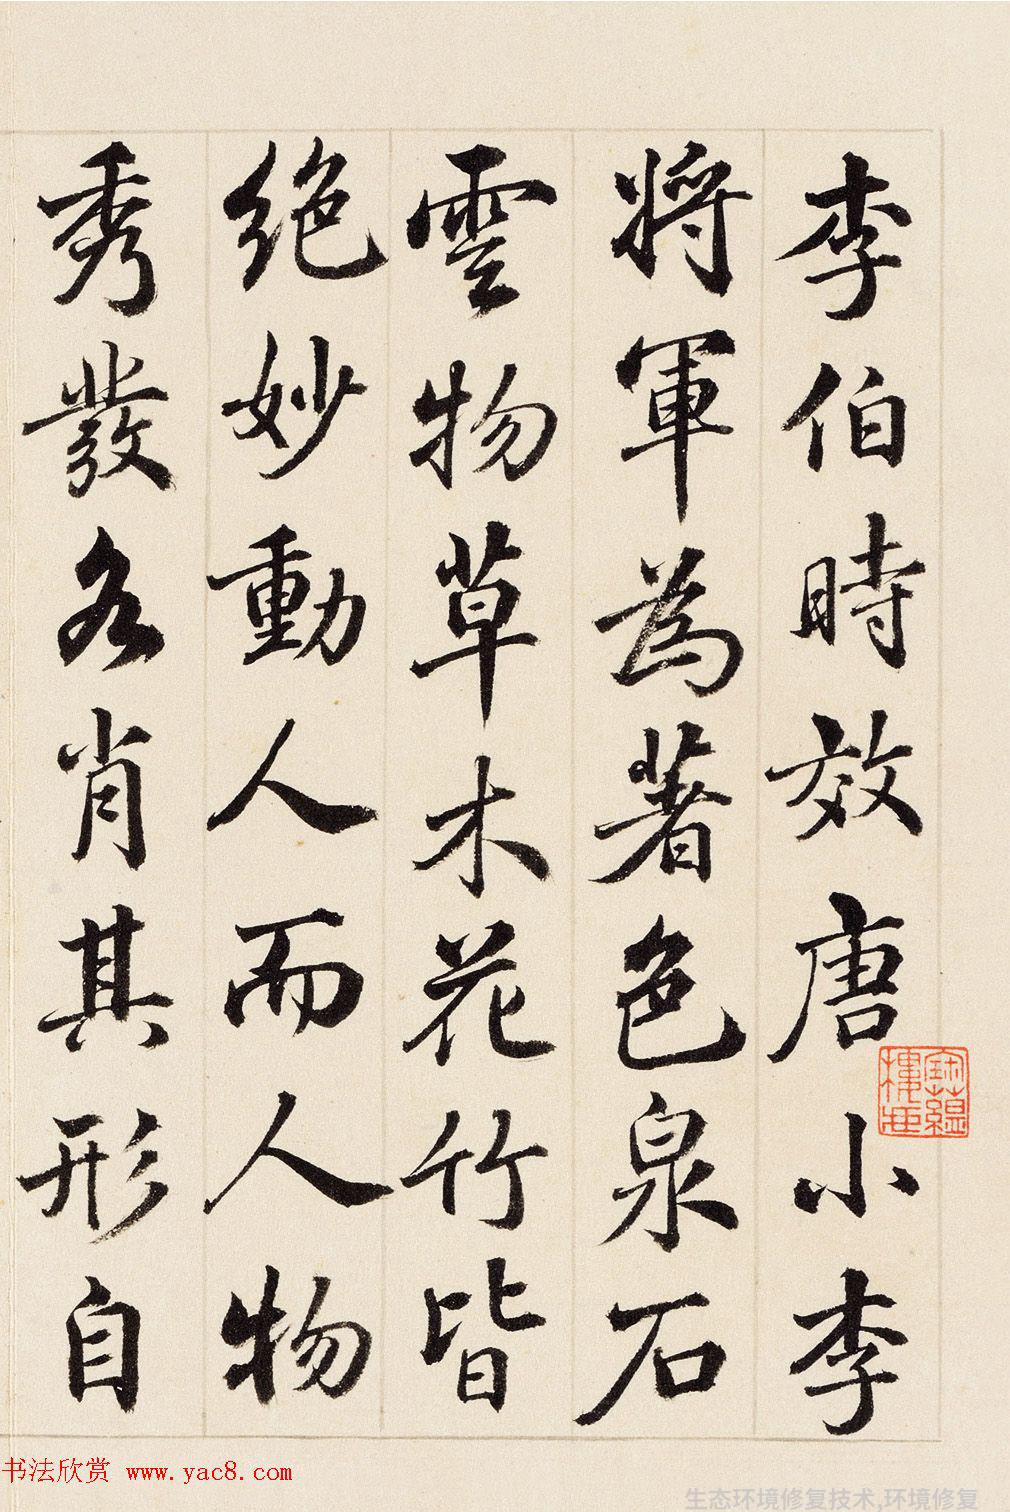 李伯時效唐小李
將軍為著色泉石
雲物草木花竹皆
絕妙動人而人物
秀發各肖其形自
寶蘊
樓藏
书法欣赏 www.yac8.com
生态环境修复技术,环境修复